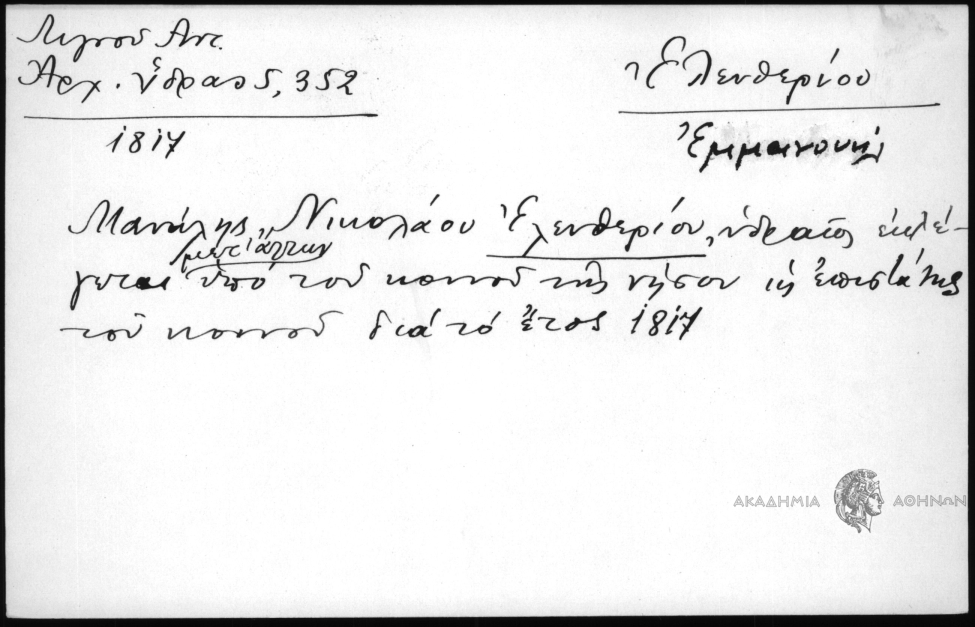 Λιγνοῦ Αντ.
Ἀρχ. Ὕδρας 5, 352
1817
Ἐλευθερίου
Ἐμμανουήλ
Μανώλης Νικολάου Ἐλευθερίου, ὑδραῖος ἐκλέ-
μετ' ἄλλων
γεται ὑπὸ τοῦ κοινοῦ τῆς νήσου εἰς ἐπιστάτης
τοῦ κοινοῦ διὰ τὸ ἔτος 1817
ΑΚΑΔΗΜΙΑ ΑΘΗΝΩΝ